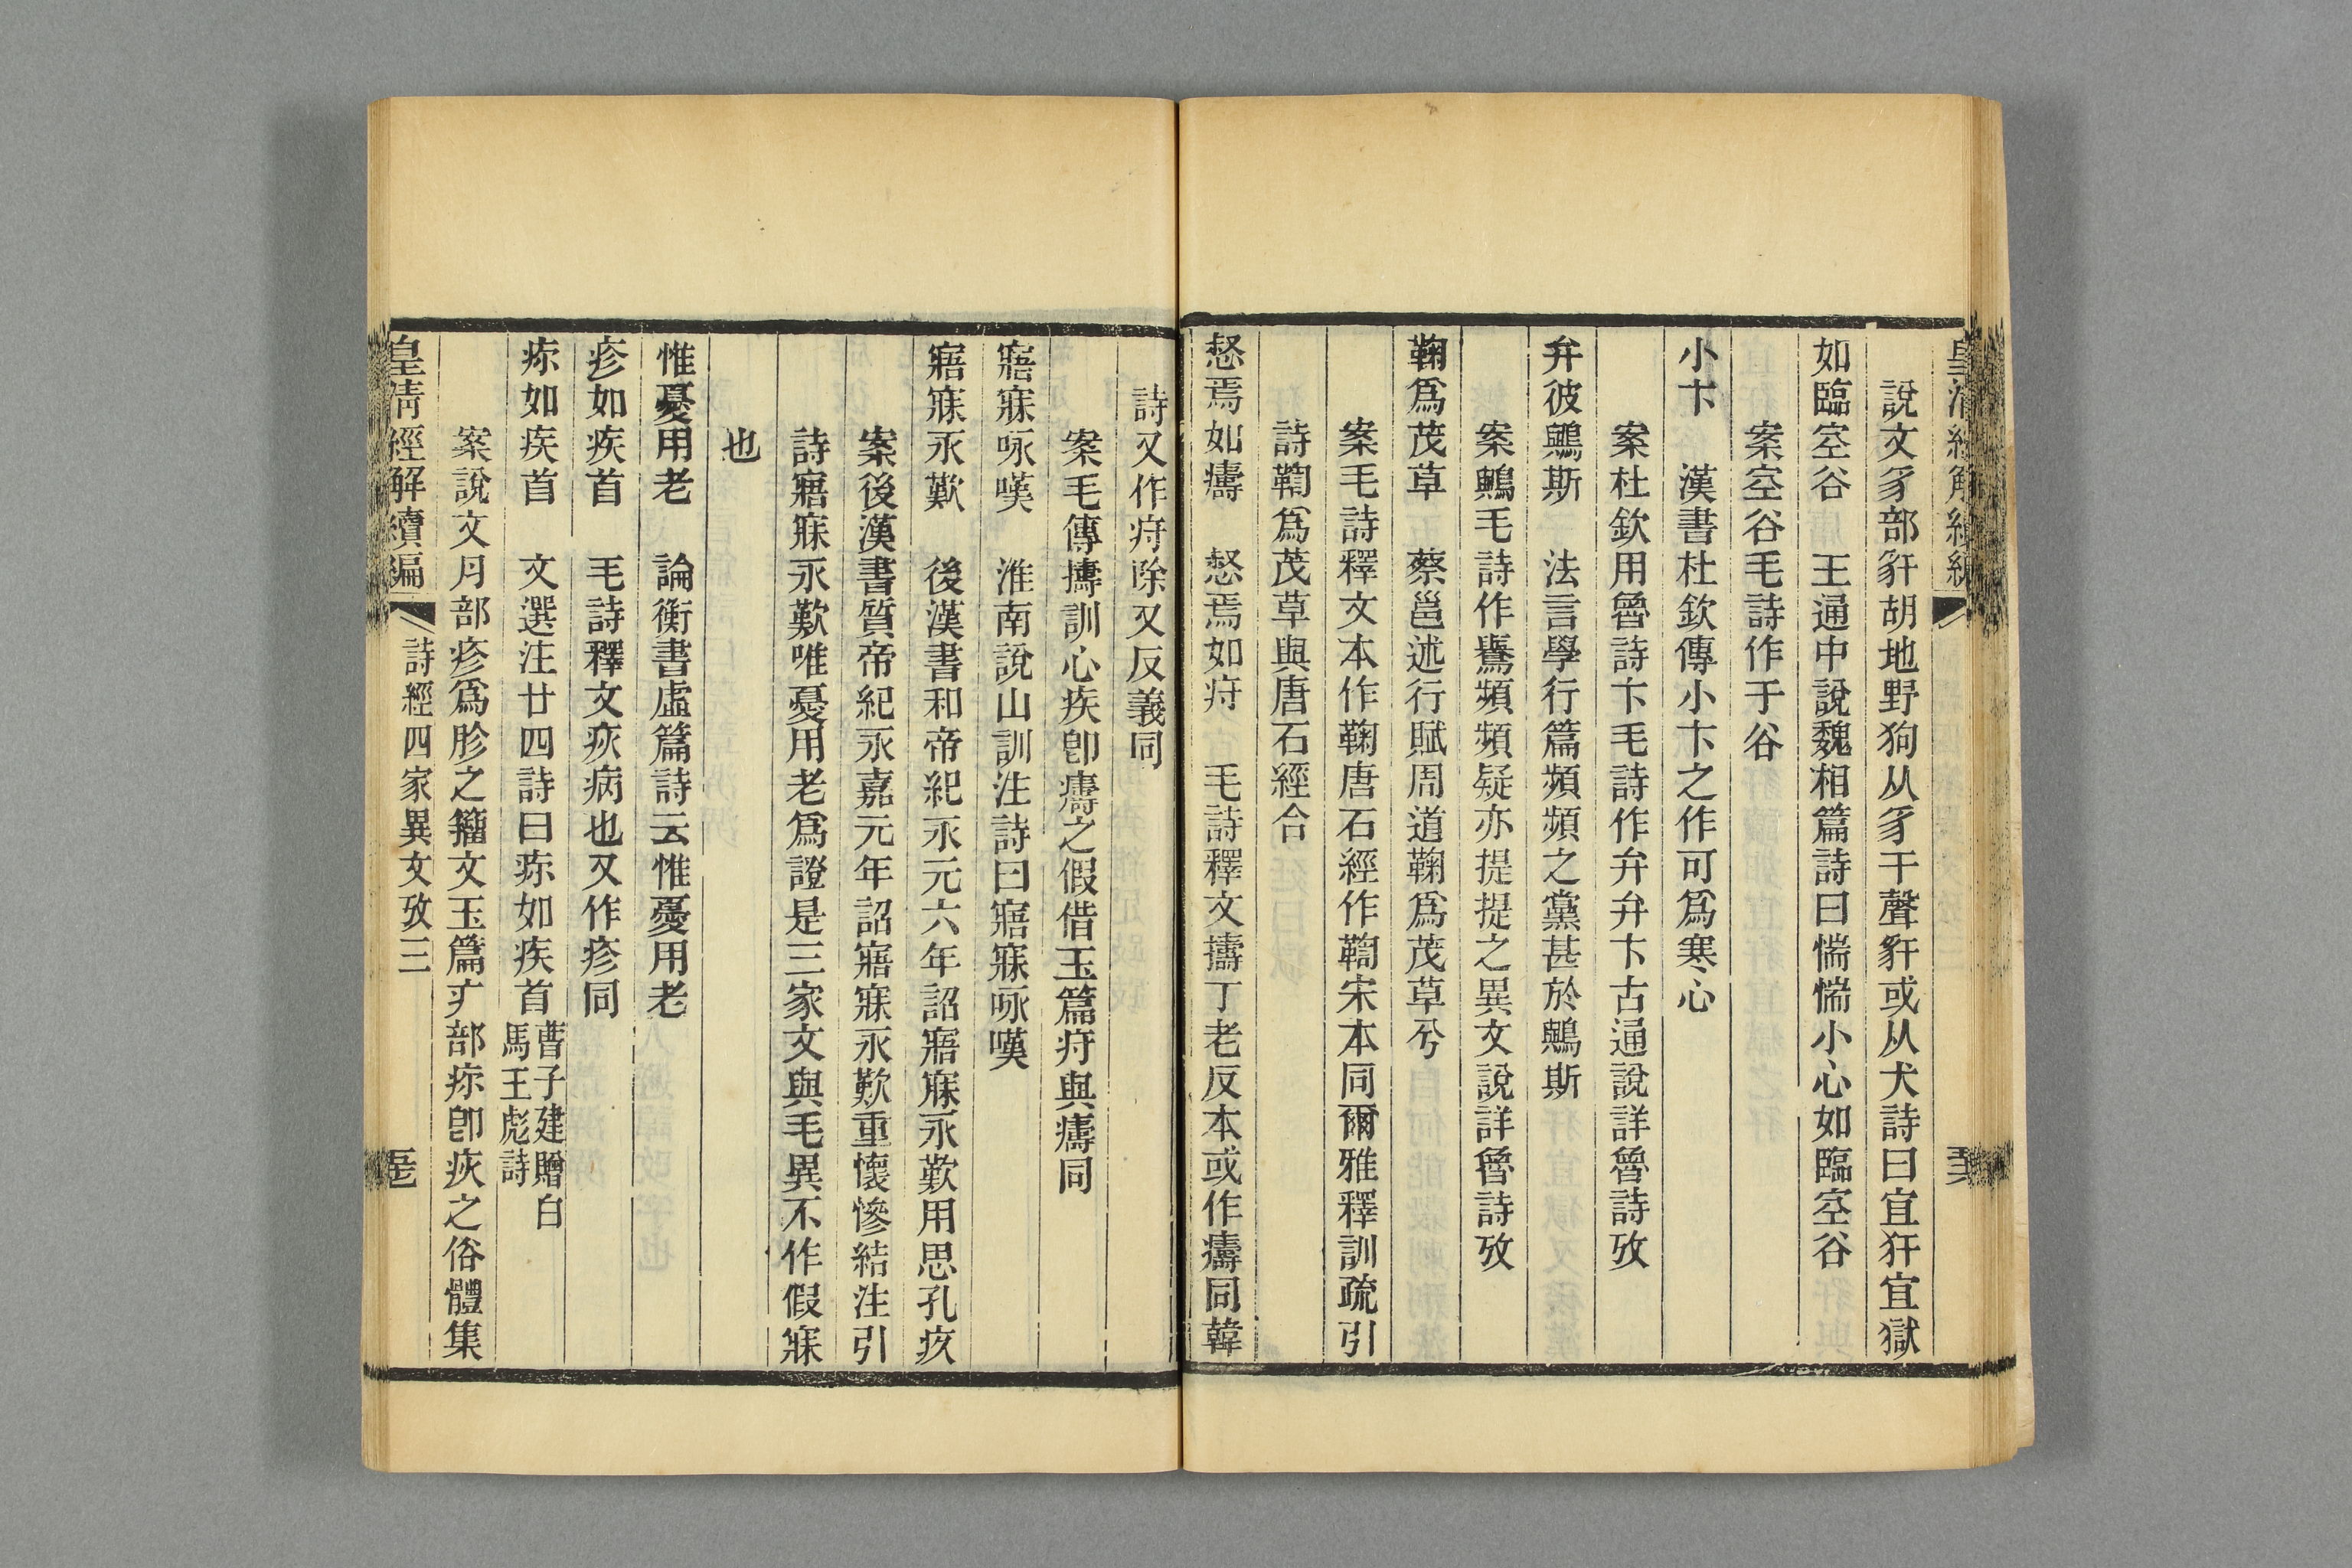 說文豸部豻胡地野狗从豸干聲豻或从犬詩曰宜犴宜獄
如臨空谷　王通中說魏相篇詩曰惴惴小心如臨空谷
案空谷毛詩作于谷
小卞　漢書杜欽傳小卞之作可爲寒心
案杜欽用魯詩卞毛詩作弁弁卞古通說詳魯詩攷
弁彼鷝斯　法言學行篇頻頻之黨甚於鷝斯
案鷝毛詩作鸒頻頻疑亦提提之異文說詳魯詩攷
鞫爲茂草　蔡邕述行賦周道鞫爲茂草兮
案毛詩釋文本作鞫唐石經作鞫宋本同爾雅釋訓疏引
詩鞫爲茂草與唐石經合
惄焉如㿒　惄焉如疛　毛詩釋文擣丁老反本或作㿒同韓
詩又作疛除又反義同
案毛傳擣訓心疾卽㿒之假借玉篇疛與㿒同
寤寐咏嘆　淮南說山訓注詩曰寤寐咏嘆
寤寐永歎　後漢書和帝紀永元六年詔寤寐永歎用思孔疚
案後漢書質帝紀永嘉元年詔寤寐永歎重懷慘結注引
詩寤寐永歎唯憂用老爲證是三家文與毛異不作假寐
也
惟憂用老　論衡書虛篇詩云惟憂用老
疹如疾首　毛詩釋文疢病也又作疹同
疩如疾首　文選注廿四詩曰疩如疾首曹子建贈白馬王彪詩
案說文⺼部疹爲胗之籀文玉篇疒部疩卽疢之俗體集
皇清經解續編　詩經四家異文攷三